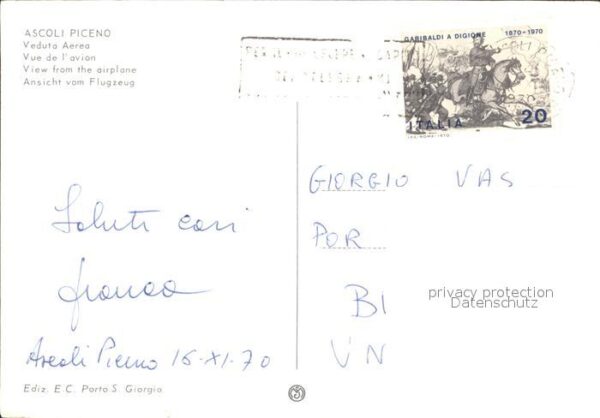 ASCOLI PICENO
Veduta Aerea
Vue de l'avion
View from the airplane
Ansicht vom Flugzeug
GARIBALDI A DIGIONE 1870-1970
ITALIA 20
Saluti cari
Franca
Ascoli Piceno 16-XI-70
GIORGIO VAS
POR
BI
VN
privacy protection
Datenschutz
Ediz. E.C. Porto S. Giorgio